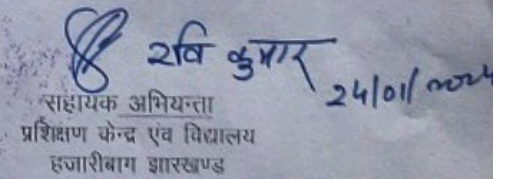 रवि कुमार
24/01/2024
सहायक अभियन्ता
प्रशिक्षण केन्द्र एवं विद्यालय
हजारीबाग झारखण्ड